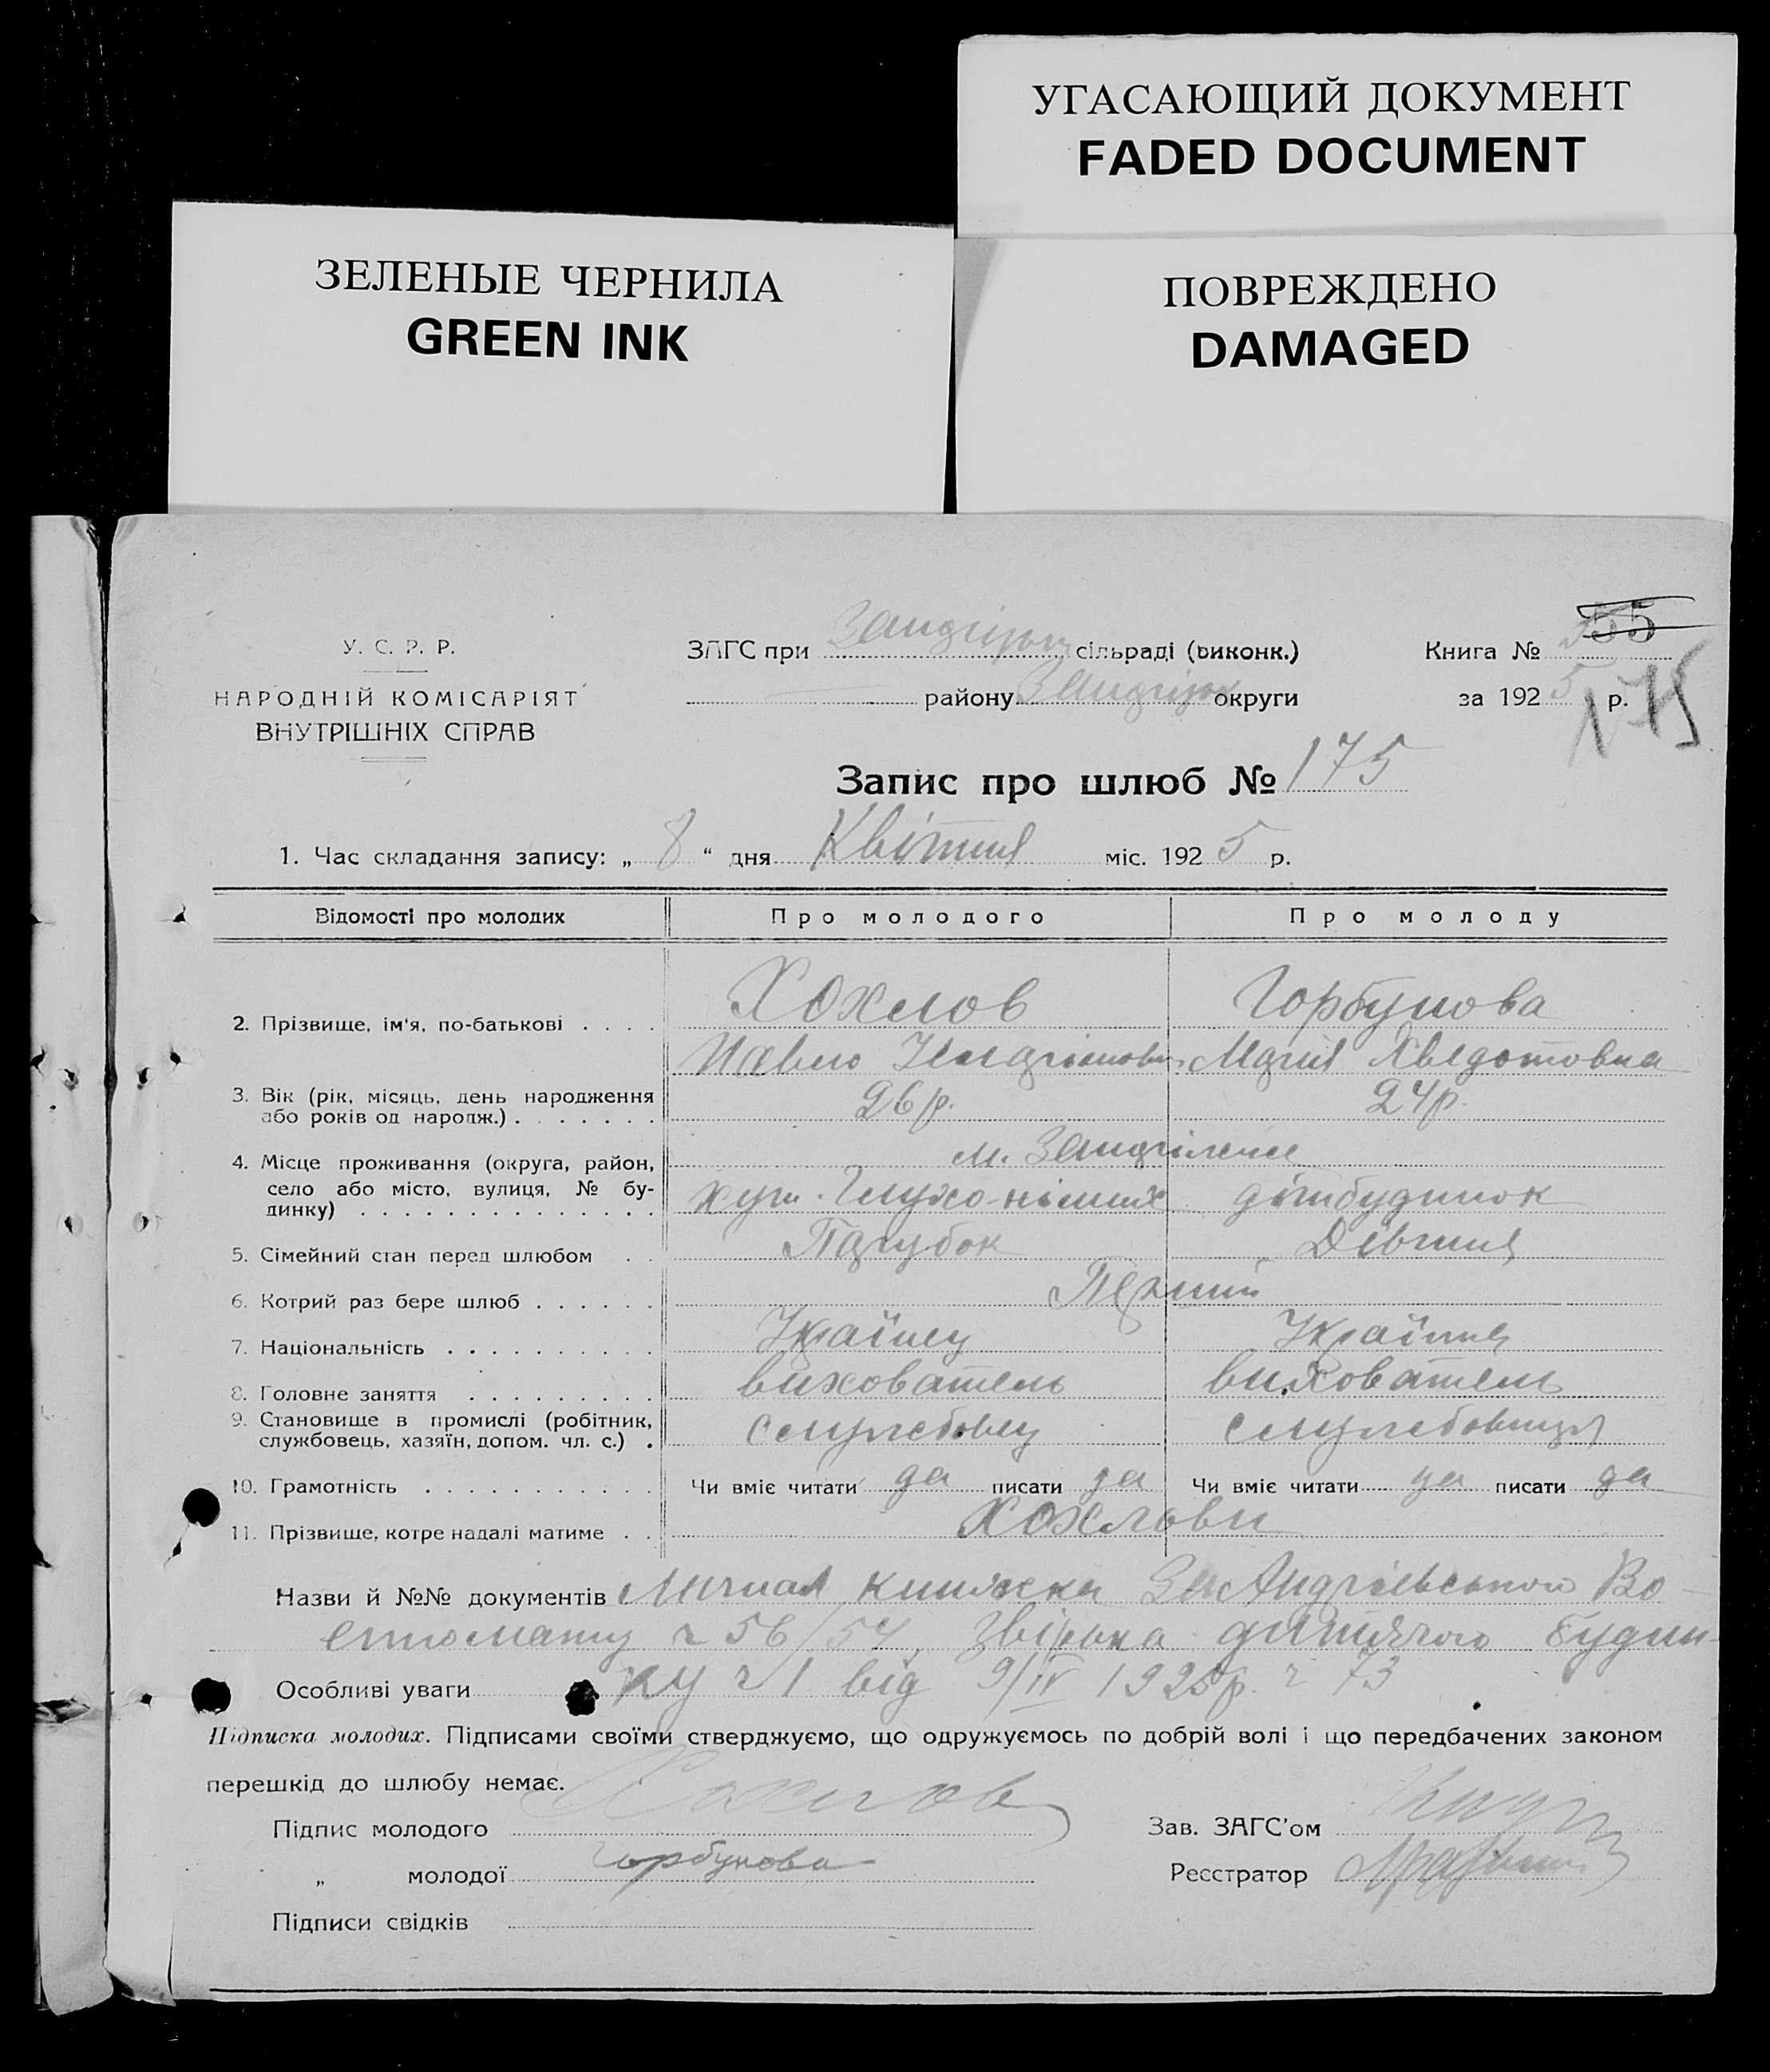 УГАСАЮЩИЙ ДОКУМЕНТ
FADED DOCUMENT
ЗЕЛЕНЫЕ ЧЕРНИЛА
GREEN INK
ПОВРЕЖДЕНО
DAMAGED
55
У. С. Р. Р.
НАРОДНІЙ КОМІСАРІЯТ
ВНУТРІШНІХ СПРАВ
ЗАГС при сільраді (виконк.)
району округи
Книга №
за 1925 р.
175
Запис про шлюб № 175
1. Час складання запису: „ 8 “ дня Квітня міс. 1925 р.
Відомості про молодих Про молодого Про молоду
2. Прізвище, ім'я, по-батькові . . . . Хохлов Горбунова
Павло Марія Хведотовна
3. Вік (рік, місяць, день народження
або років од народж.) . . . . . . . 26 р. 24 р.
4. Місце проживання (округа, район,
село або місто, вулиця, № бу-
динку) . . . . . . . . . . . . . . м.
Глухо-німих дітбудинок
5. Сімейний стан перед шлюбом . . Парубок Дівчина
6. Котрий раз бере шлюб . . . . . . Перший
7. Національність . . . . . . . . . . Українец Українка
8. Головне заняття . . . . . . . . . вихователь вихователь
9. Становище в промислі (робітник,
службовець, хазяїн, допом. чл. с.) . службовец службовиця
10. Грамотність . . . . . . . . . . . Чи вміє читати да писати да Чи вміє читати да писати да
11. Прізвище, котре надалі матиме . . Хохлови
Назви й №№ документів Личная книжка Во-
ч 56/54, дитячого будин-
Особливі уваги ку ч 1 від 9/IV 1925 р. ч 73
Підписка молодих. Підписами своїми стверджуємо, що одружуємось по добрій волі і що передбачених законом
перешкід до шлюбу немає.
Підпис молодого Хохлов
„ молодої Горбунова
Підписи свідків
Зав. ЗАГС'ом
Реєстратор